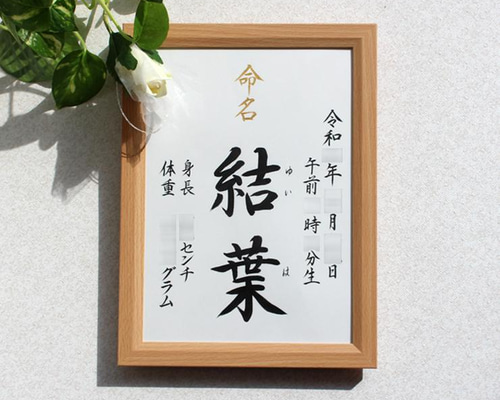 命名
令和 年 月 日
午前 時 分生
結葉
ゆい は
身長 センチ
体重 グラム